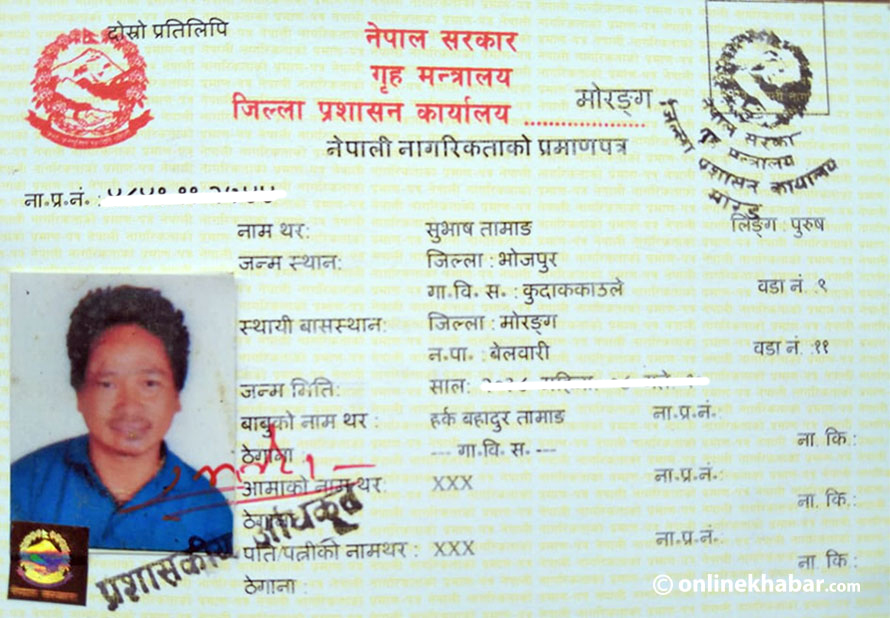 दोस्रो प्रतिलिपि
नेपाल सरकार
गृह मन्त्रालय
जिल्ला प्रशासन कार्यालय ................ मोरङ्ग
नेपाली नागरिकताको प्रमाणपत्र
नेपाल सरकार
गृह मन्त्रालय
जिल्ला प्रशासन कार्यालय
मोरङ
ना.प्र.नं. :
नाम थर: सुभाष तामाङ लिङ्ग : पुरुष
जन्म स्थान: जिल्ला : भोजपुर
गा.वि.स. : कुदाककाउले वडा नं. ९
स्थायी बासस्थान: जिल्ला : मोरङ्ग
न.पा. : बेलवारी वडा नं. ११
जन्म मिति: साल:
बाबुको नाम थर : हर्क बहादुर तामाङ ना.प्र.नं.:
ठेगाना : --- गा.वि.स. --- ना. कि.:
आमाको नाम थर: XXX ना.प्र.नं.:
ठेगाना: ना. कि.:
पति पत्नीको नामथर : XXX ना.प्र.नं.:
ठेगाना : ना. कि.:
प्रशासकीय अधिकृत
© onlinekhabar.com